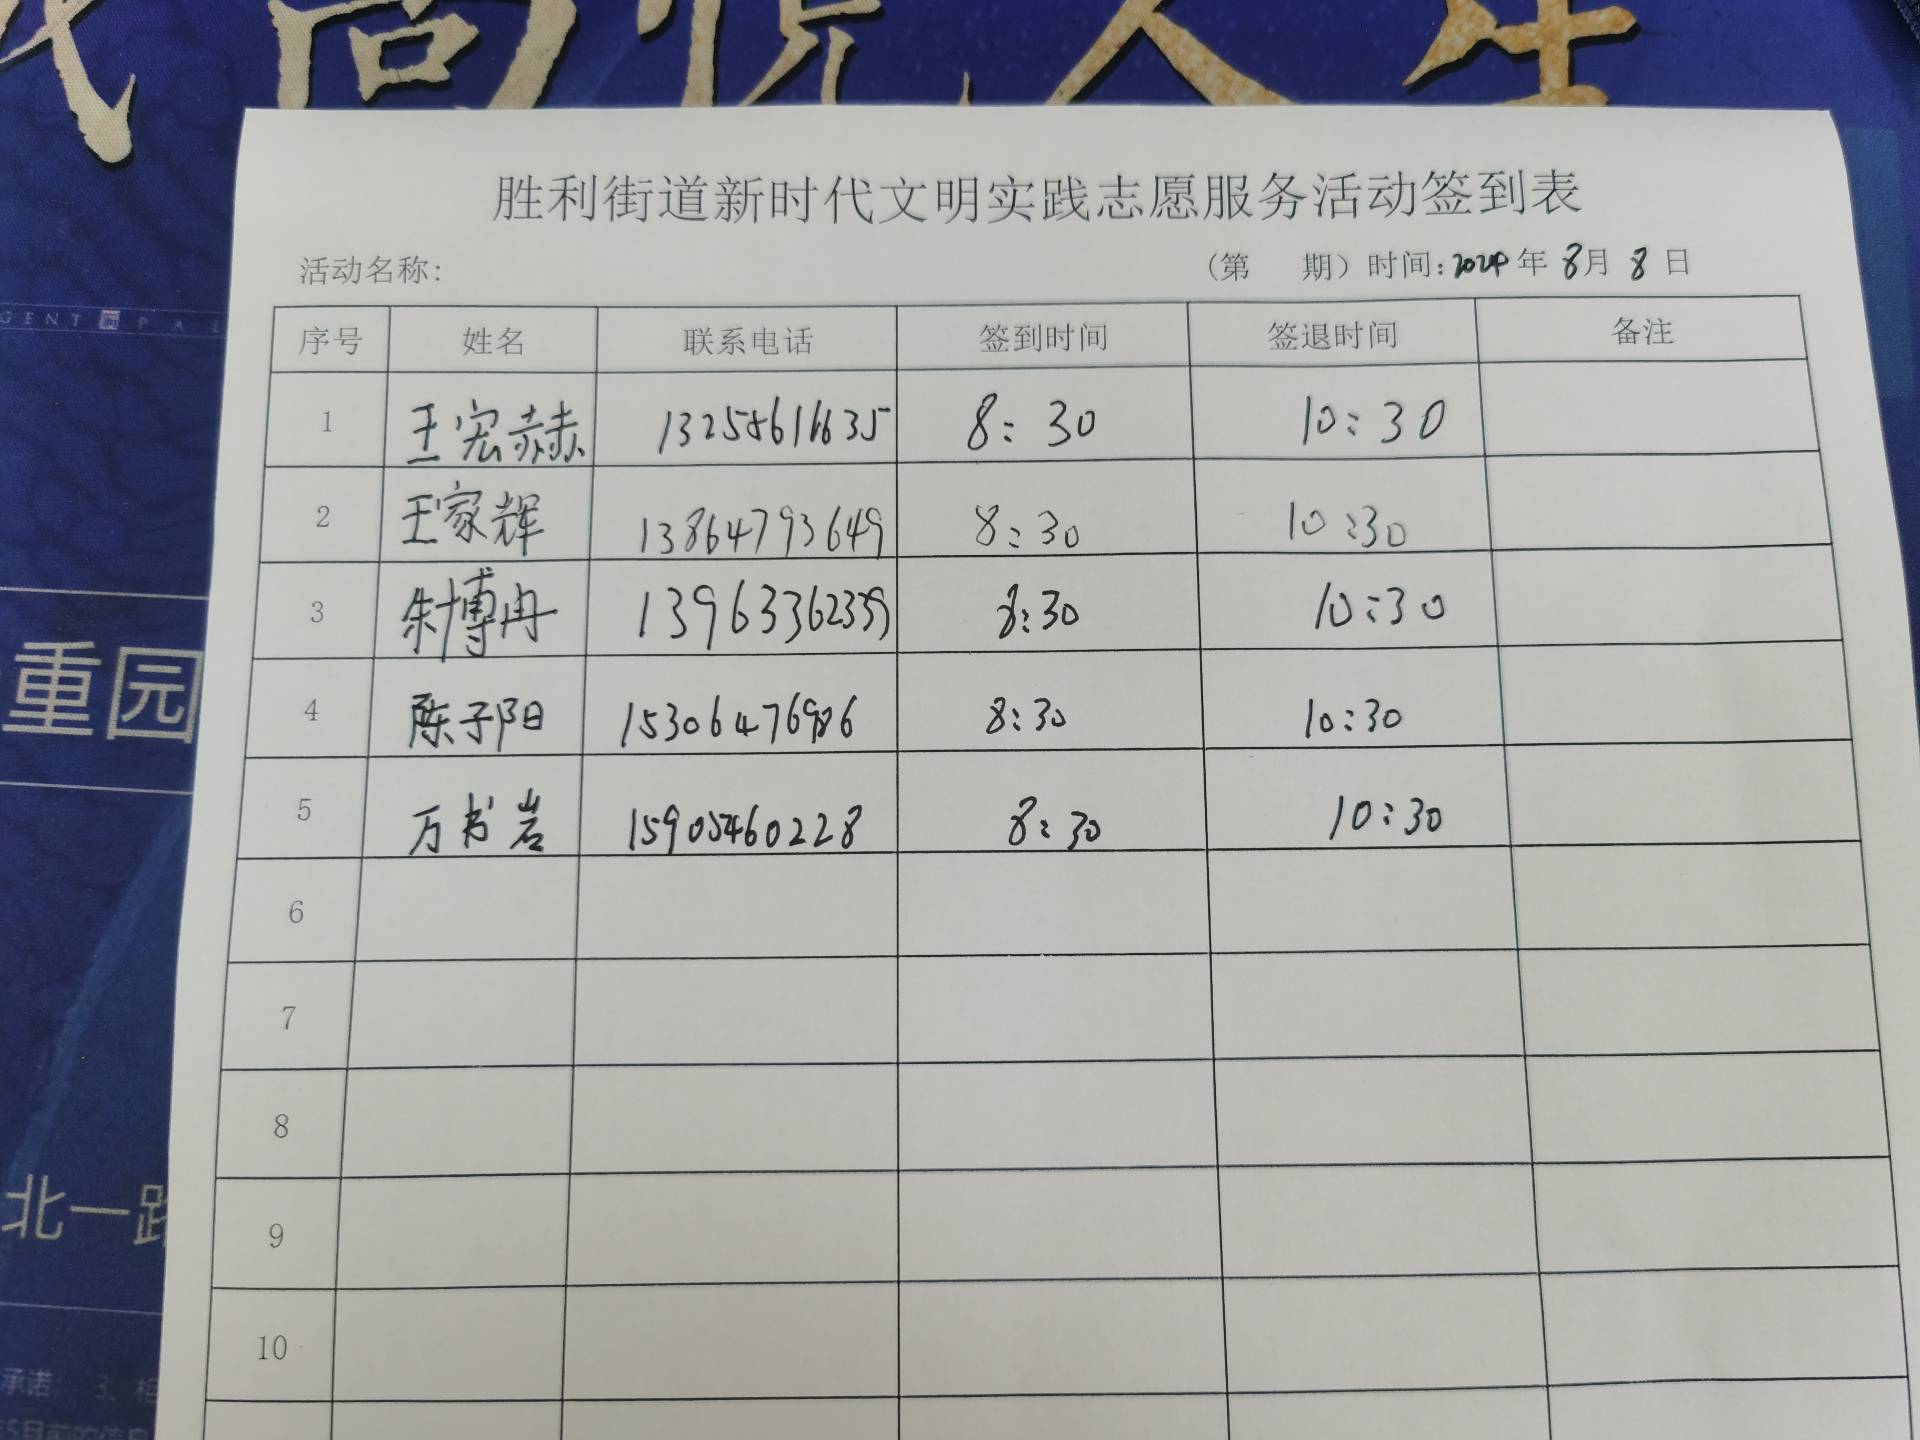 尚悦人生
GENT PAL
重园
北一路
承诺 3、相
胜利街道新时代文明实践志愿服务活动签到表
活动名称: (第 期) 时间: 2024 年 8 月 8 日
序号 姓名 联系电话 签到时间 签退时间 备注
1 王宏赫 8:30 10:30
2 王家辉 13864793649 8:30 10:30
3 朱博冉 13963362339 8:30 10:30
4 陈子阳 8:30 10:30
5 万书岩 15905460228 8:30 10:30
6
7
8
9
10